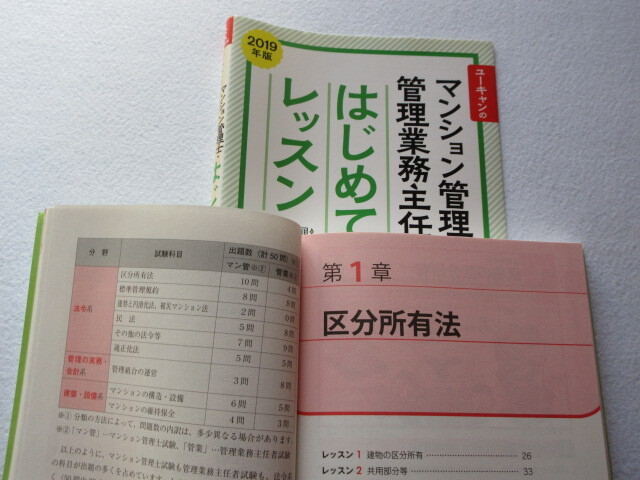 2019
年版
ユーキャンの
マンション管理
管理業務主任
はじめて
レッスン
マンション管理士
分野 試験科目 出題数（計50問）
マン管※② 管業
法令系
区分所有法 10問 4問
標準管理規約 8問 8問
建替え円滑化法、被災マンション法 2問 0問
民法 5問 8問
その他の法令等 7問 9問
適正化法 5問 5問
管理の実務・
会計系
管理組合の運営 3問 8問
建築・設備系
マンションの構造・設備 6問 5問
マンションの維持保全 4問 3問
※① 分類の方法によって、問題数の内訳は、多少異なる場合があります。
※②「マン管」…マンション管理士試験、「管業」…管理業務主任者試験
以上のように、マンション管理士試験も管理業務主任者試験も、法令系
の科目が出題の多くを占めています。
第1章
区分所有法
レッスン 1 建物の区分所有 26
レッスン 2 共用部分等 33